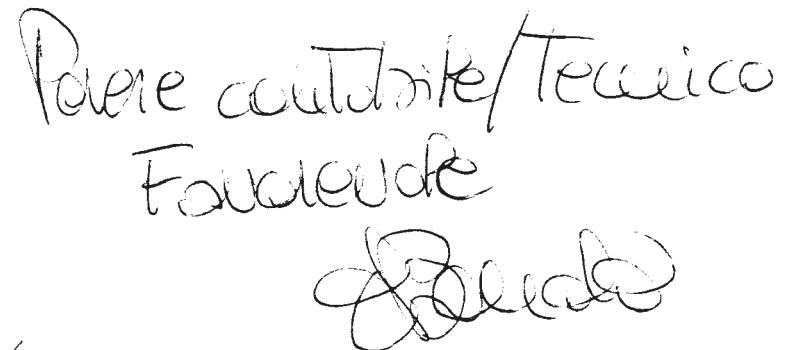 Parere contabile/Tecnico
Favorevole